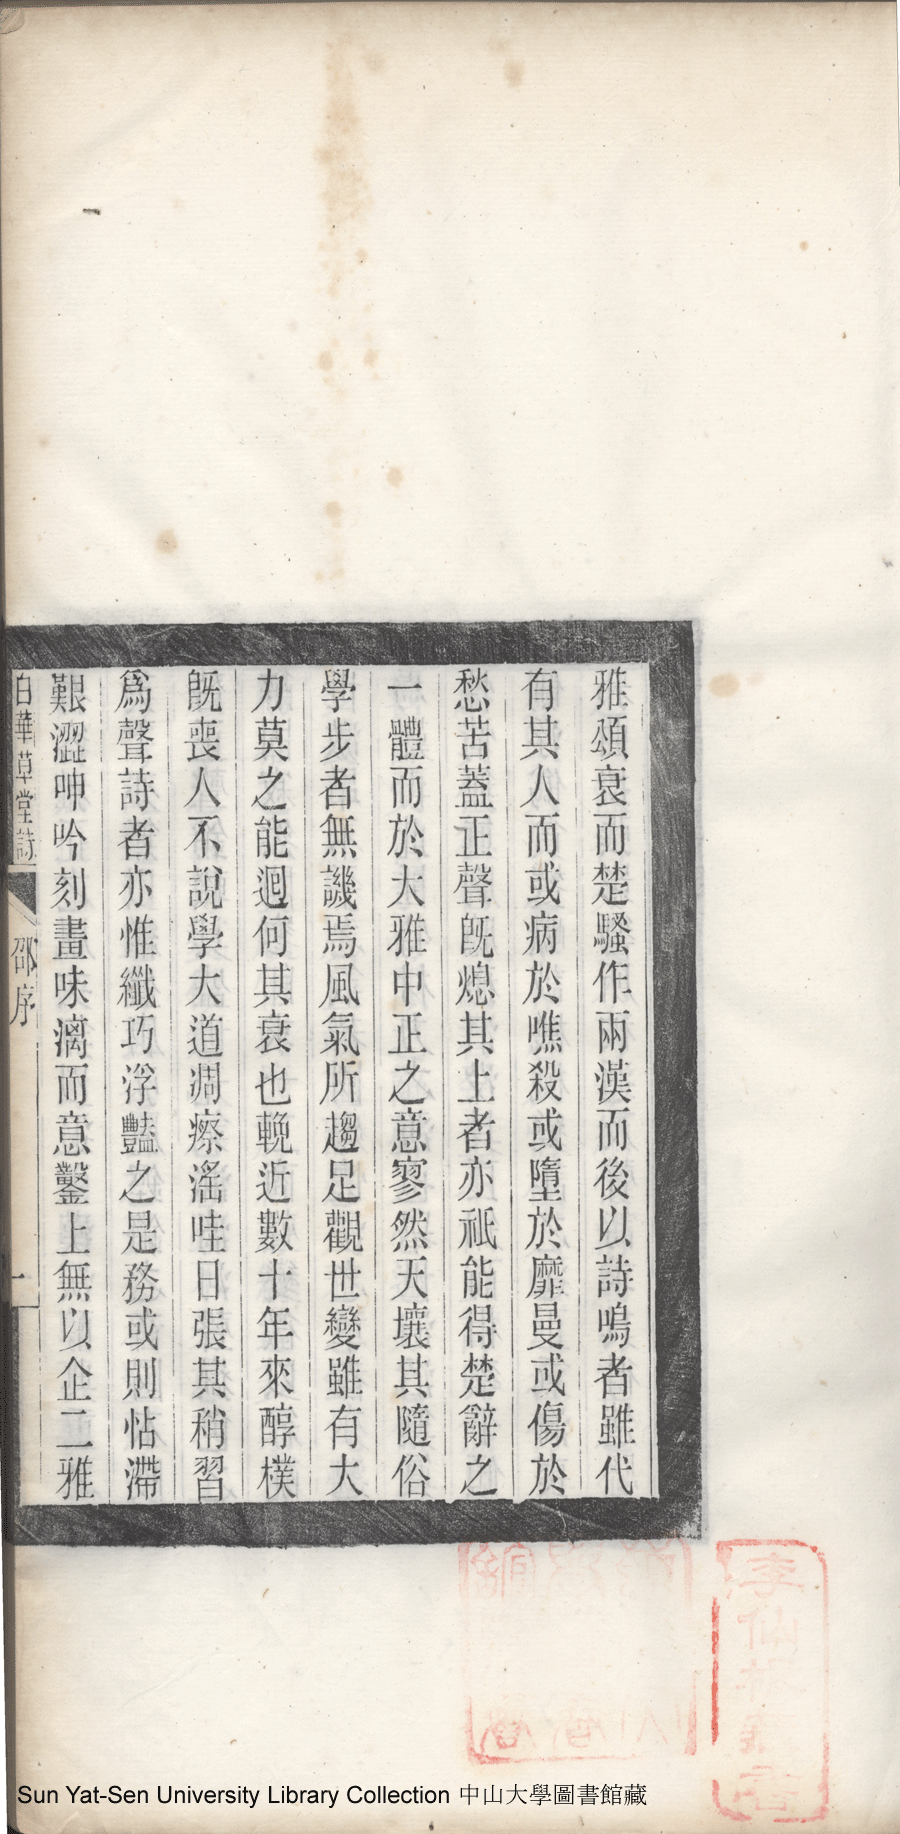 雅頌衰而楚騷作兩漢而後以詩鳴者雖代
有其人而或病於噍殺或墮於靡曼或傷於
愁苦蓋正聲旣熄其上者亦祇能得楚辭之
一體而於大雅中正之意寥然天壤其隨俗
學步者無譏焉風氣所趨足觀世變雖有大
力莫之能迴何其衰也輓近數十年來醇樸
旣喪人不說學大道凋瘵滛哇日張其稍習
爲聲詩者亦惟纖巧浮豔之是務或則怗滯
艱澀呻吟刻畫味漓而意鑿上無以企二雅
白華草堂詩
邵序
一
Sun Yat-Sen University Library Collection 中山大學圖書館藏